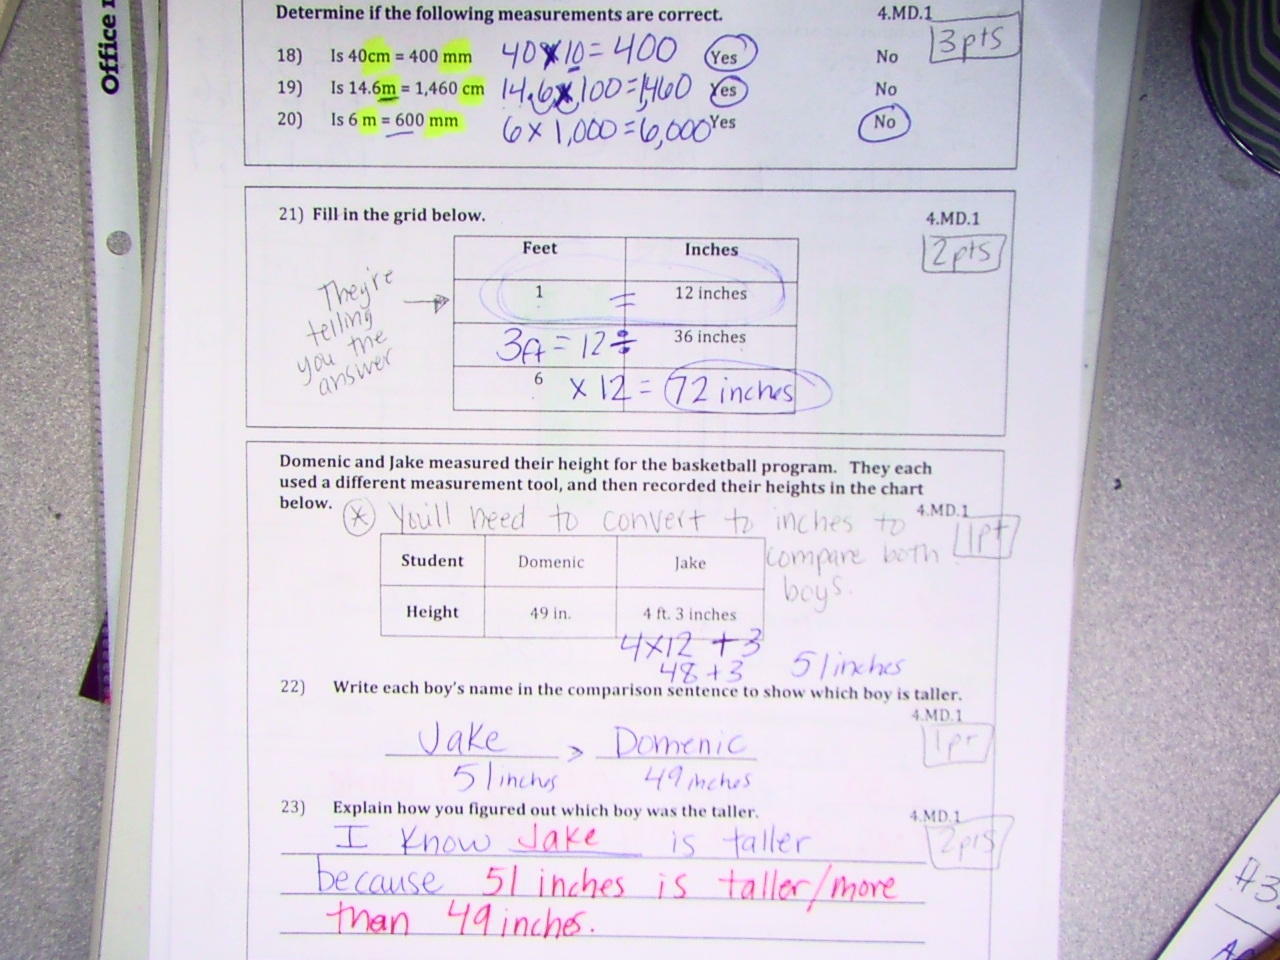 Office
Determine if the following measurements are correct. 4.MD.1
3pts
18) Is 40cm = 400 mm 40 x 10 = 400 Yes No
19) Is 14.6m = 1,460 cm 14.6 x 100 = 1,460 Yes No
20) Is 6 m = 600 mm 6 x 1,000 = 6,000 Yes No
21) Fill in the grid below. 4.MD.1
2pts
They're
telling
you the
answer
Feet Inches
1 = 12 inches
3ft = 12 ÷ 36 inches
6 x 12 = 72 inches
Domenic and Jake measured their height for the basketball program. They each
used a different measurement tool, and then recorded their heights in the chart
below. 4.MD.1
* You'll need to convert to inches to
compare both
boys.
1pt
Student Domenic Jake
Height 49 in. 4 ft. 3 inches
4x12 + 3
48 + 3 51 inches
22) Write each boy's name in the comparison sentence to show which boy is taller.
4.MD.1
1pt
Jake > Domenic
51 inches 49 inches
23) Explain how you figured out which boy was the taller. 4.MD.1
2pts
I know Jake is taller
because 51 inches is taller/more
than 49 inches.